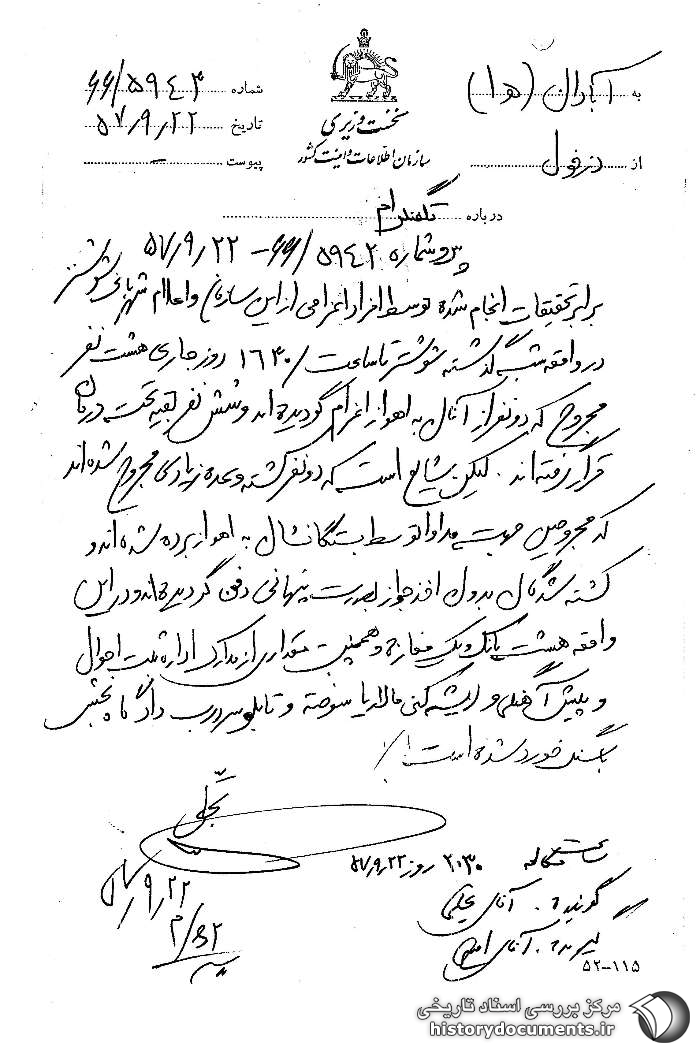 به آبادان (ه‍ ۱)
از دزفول
نخست وزیری
سازمان اطلاعات و امنیت کشور
شماره ۶۶/۵۹۴۳
تاریخ ۵۷/۹/۲۲
پیوست –
درباره تلفنگرام
پیرو شماره ۶۶/۵۹۴۲ - ۵۷/۹/۲۲
برابر تحقیقات انجام شده توسط افراد اعزامی از این سازمان و اعلام شهربانی شوشتر
در واقعه شب گذشته شوشتر تا ساعت ۱۶۳۰/ روز جاری هشت نفر
مجروح که دو نفر از آنان به اهواز اعزام گردیده اند و شش نفر بقیه تحت درمان
قرار گرفته اند. لیکن شایع است که دو نفر کشته و عده زیادی مجروح شده اند
که مجروحین جهت مداوا توسط بستگانشان به اهواز برده شده اند و
کشته شدگان بدون اخذ جواز بصورت پنهانی دفن گردیده اند و در این
واقعه هشت بانک و یک مغازه و همچنین مقداری از مدارک اداره ثبت احوال
و پیش آهنگی و ریشه کنی مالاریا سوخته و تابلو سردرب دادگاه بخش
با سنگ خورد شده است./
تجلی
۵۷/۹/۲۲
ساعت مکالمه ۲۰۳۰ روز ۵۷/۹/۲۲
گوینده. آقای
گیرنده. آقای
۵۲-۱۱۵
مرکز بررسی اسناد تاریخی
historydocuments.ir